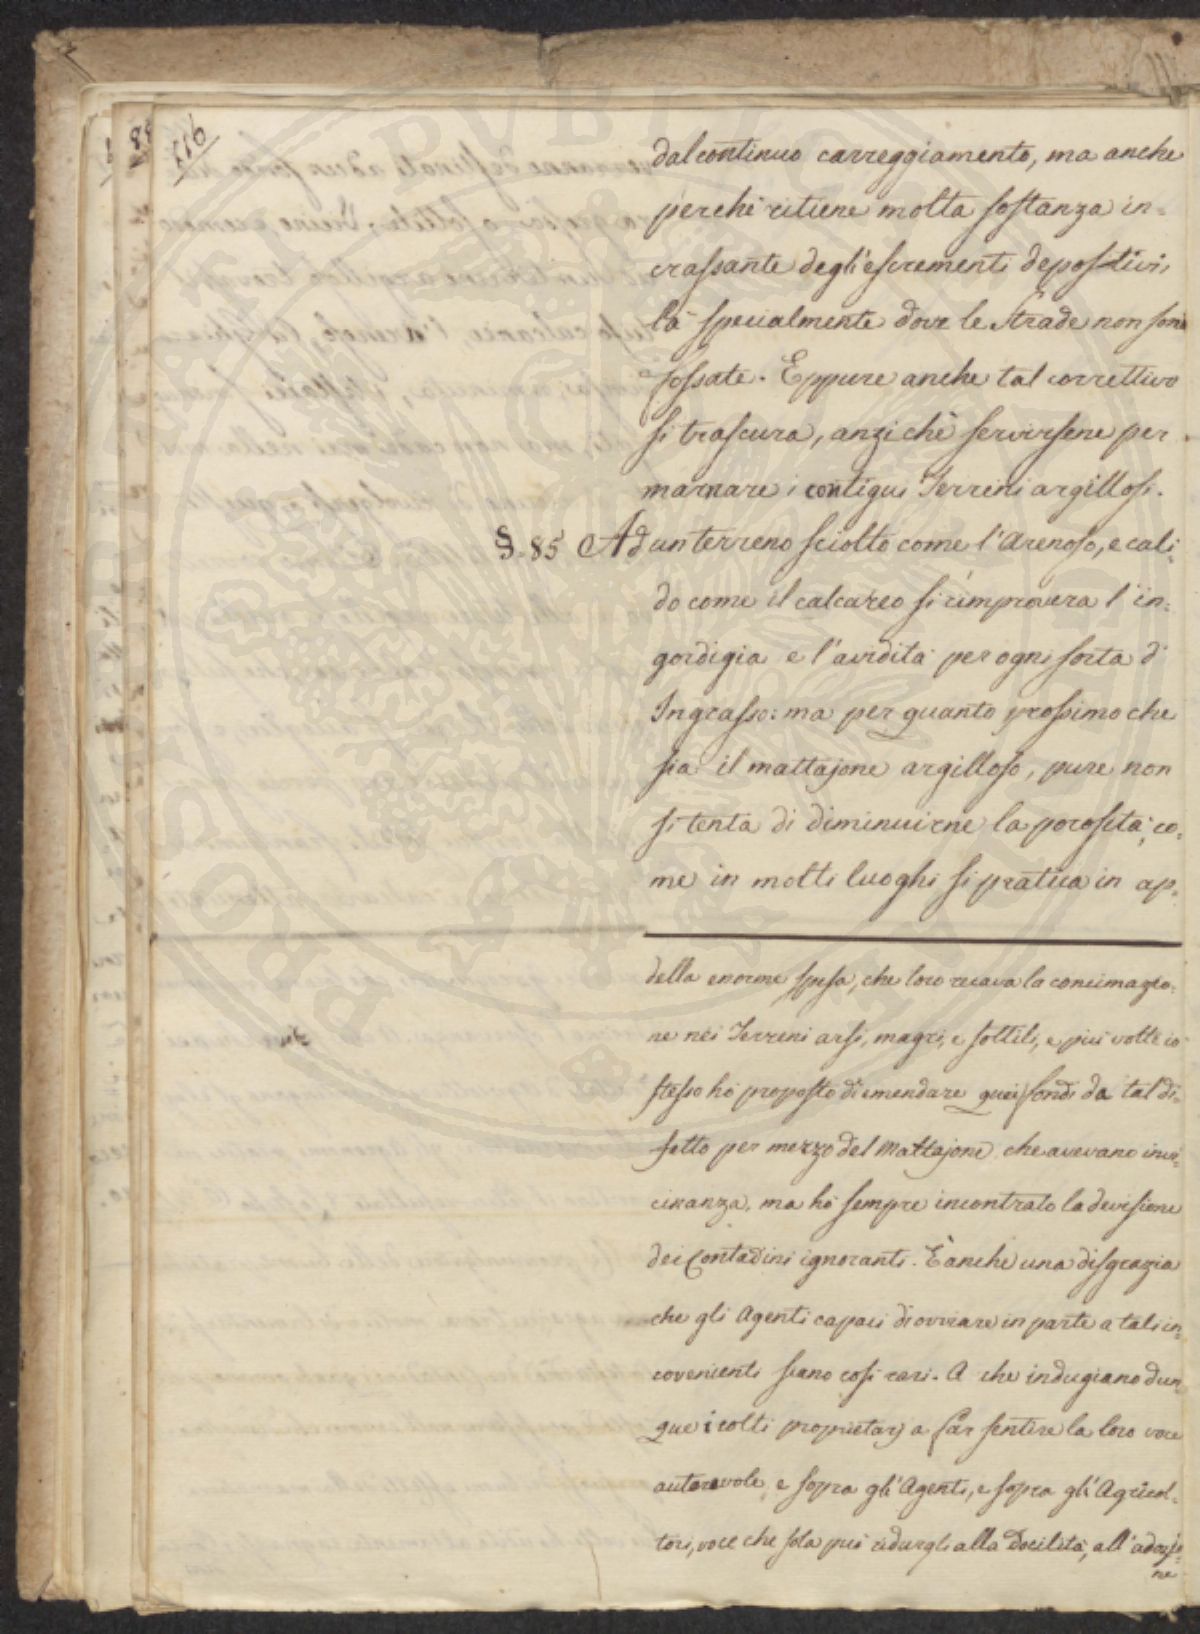 116
dal continuo carreggiamento, ma anche
perchè ritiene molta sostanza in=
crassante degl'escrementi depostivi,
là specialmente dove le strade non sono
fossate. Eppure anche tal correttivo
si trascura, anzichè servirsene per
marnare i contigui Terreni argillosi.
§. 85 Ad un terreno sciolto come l'Arenoso, e cali=
do come il calcareo si rimprovera l'in=
gordigia e l'avidità per ogni sorta di
Ingrasso: ma per quanto prossimo che
sia il mattajone argilloso, pure non
si tenta di diminuirne la porosità, co=
me in molti luoghi si pratica in ap=
della enorme spesa, che loro recava la concimazio=
ne nei Terreni arsi, magri, e sottili, e più volte io
stesso hò proposto di emendare quei fondi da tal di=
fetto per mezzo del Mattajone che avevano invi=
cinanza, ma hò sempre incontrato la derisione
dei Contadini ignoranti. È anche una disgrazia
che gli Agenti capaci di ovviare in parte a tali in=
covenienti siano così rari. A che indugiano dun
que i colti proprietarj a far sentire la loro voce
autorevole e sopra gl'Agenti, e sopra gl'Agricol=
tori, voce che sola può ridurgli alla docilità, all'adozio=
ne